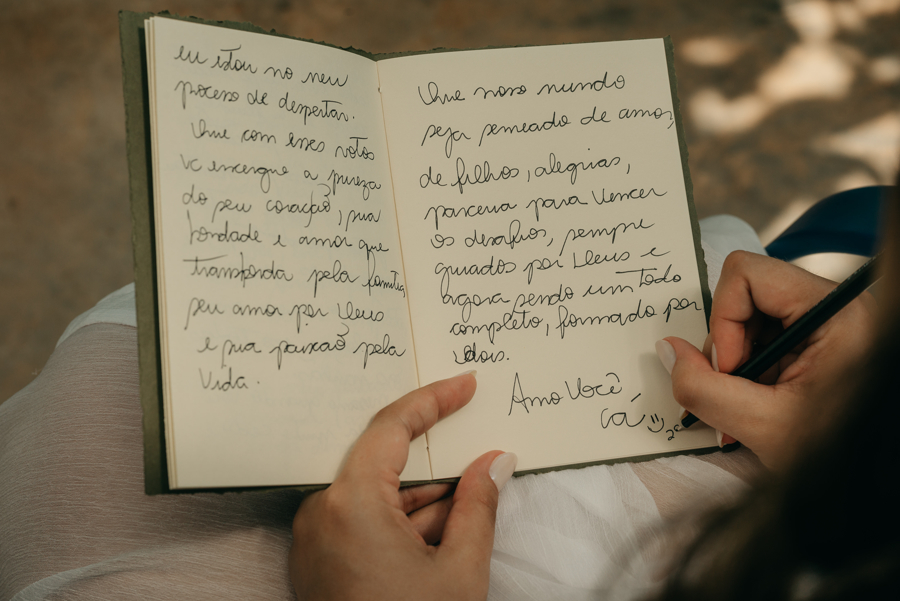 eu estou no meu
processo de despertar.
Que com esses votos
vc enxergue a pureza
do seu coração, sua
bondade e amor que
transborda pela família,
seu amor por Deus
e sua paixão pela
vida.
Que nosso mundo
seja semeado de amor,
de filhos, alegrias,
parceria para vencer
os desafios, sempre
guiados por Deus e
agora sendo um todo
completo, formado por
dois.
Amo Você
Cá